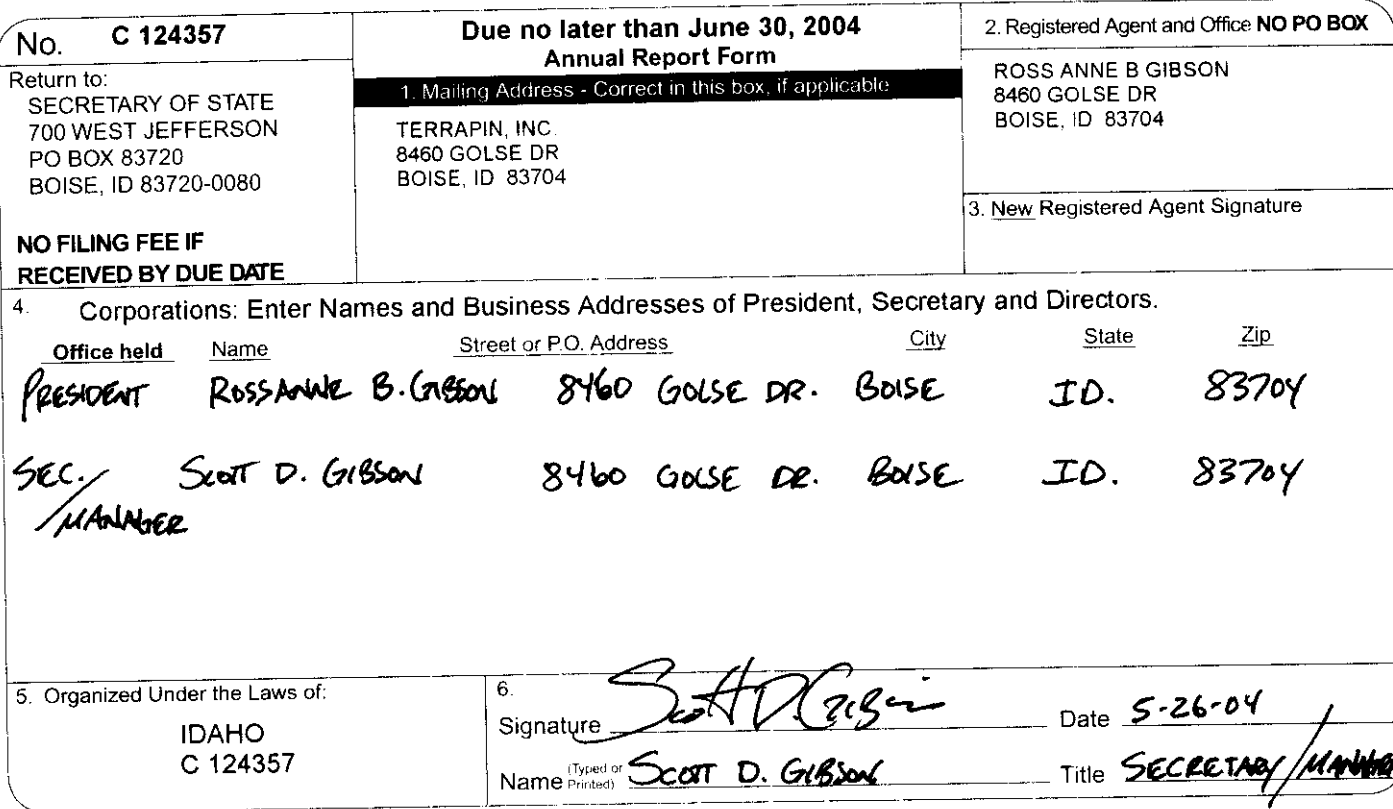 No. C 124357
Return to:
SECRETARY OF STATE
700 WEST JEFFERSON
PO BOX 83720
BOISE, ID 83720-0080
NO FILING FEE IF
RECEIVED BY DUE DATE
Due no later than June 30, 2004
Annual Report Form
1. Mailing Address - Correct in this box, if applicable
TERRAPIN, INC.
8460 GOLSE DR
BOISE, ID 83704
2. Registered Agent and Office NO PO BOX
ROSS ANNE B GIBSON
8460 GOLSE DR
BOISE, ID 83704
3. New Registered Agent Signature
4. Corporations: Enter Names and Business Addresses of President, Secretary and Directors.
Office held Name Street or P.O. Address City State Zip
PRESIDENT ROSSANNE B. GIBSON 8460 GOLSE DR. BOISE ID. 83704
SEC./ SCOTT D. GIBSON 8460 GOLSE DR. BOISE ID. 83704
MANAGER
5. Organized Under the Laws of:
IDAHO
C 124357
6.
Signature Scott D. Gibson Date 5-26-04
Name (Typed or Printed) SCOTT D. GIBSON Title SECRETARY/MANAGER